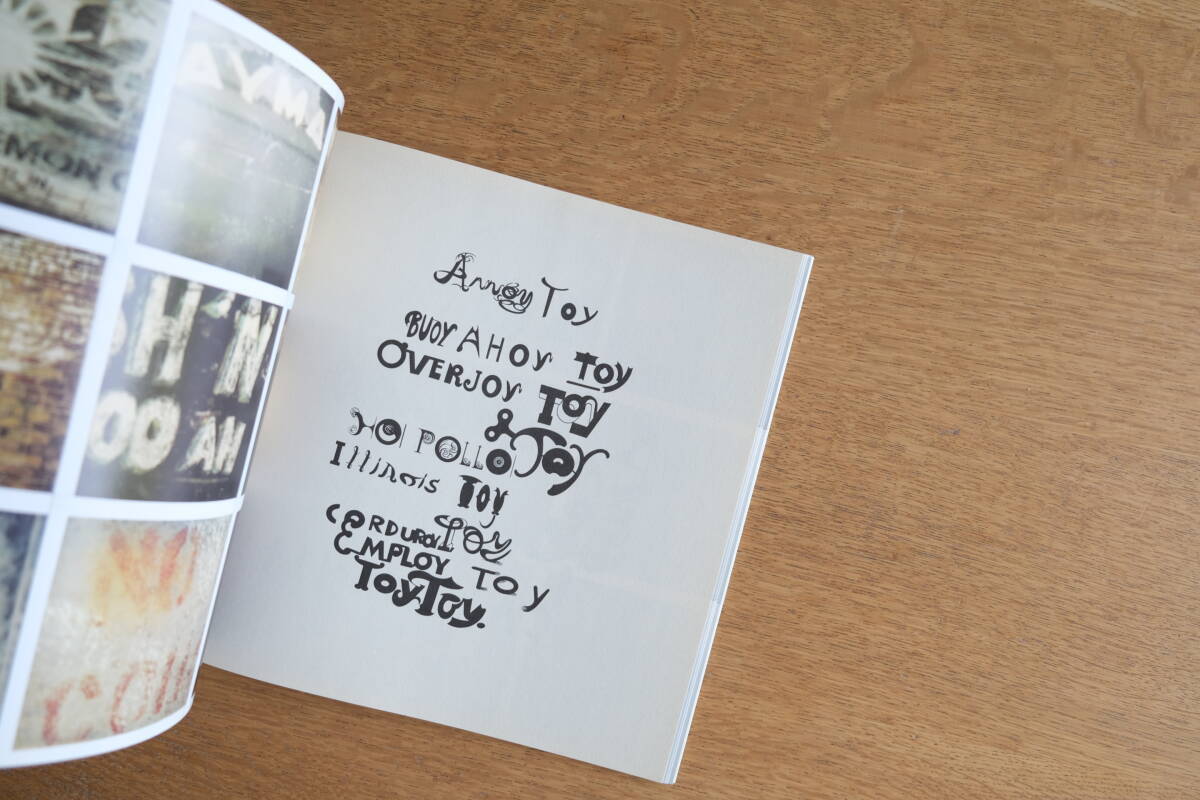 AYMA
EMON
SH N
OO AH
NO
COU
Annoy Toy
BUOY AHOY Toy
OVERJOY Toy
& Toy
HOI POLLOI
Illinois Toy
CORDUROY Toy
EMPLOY Toy
ToyToy.